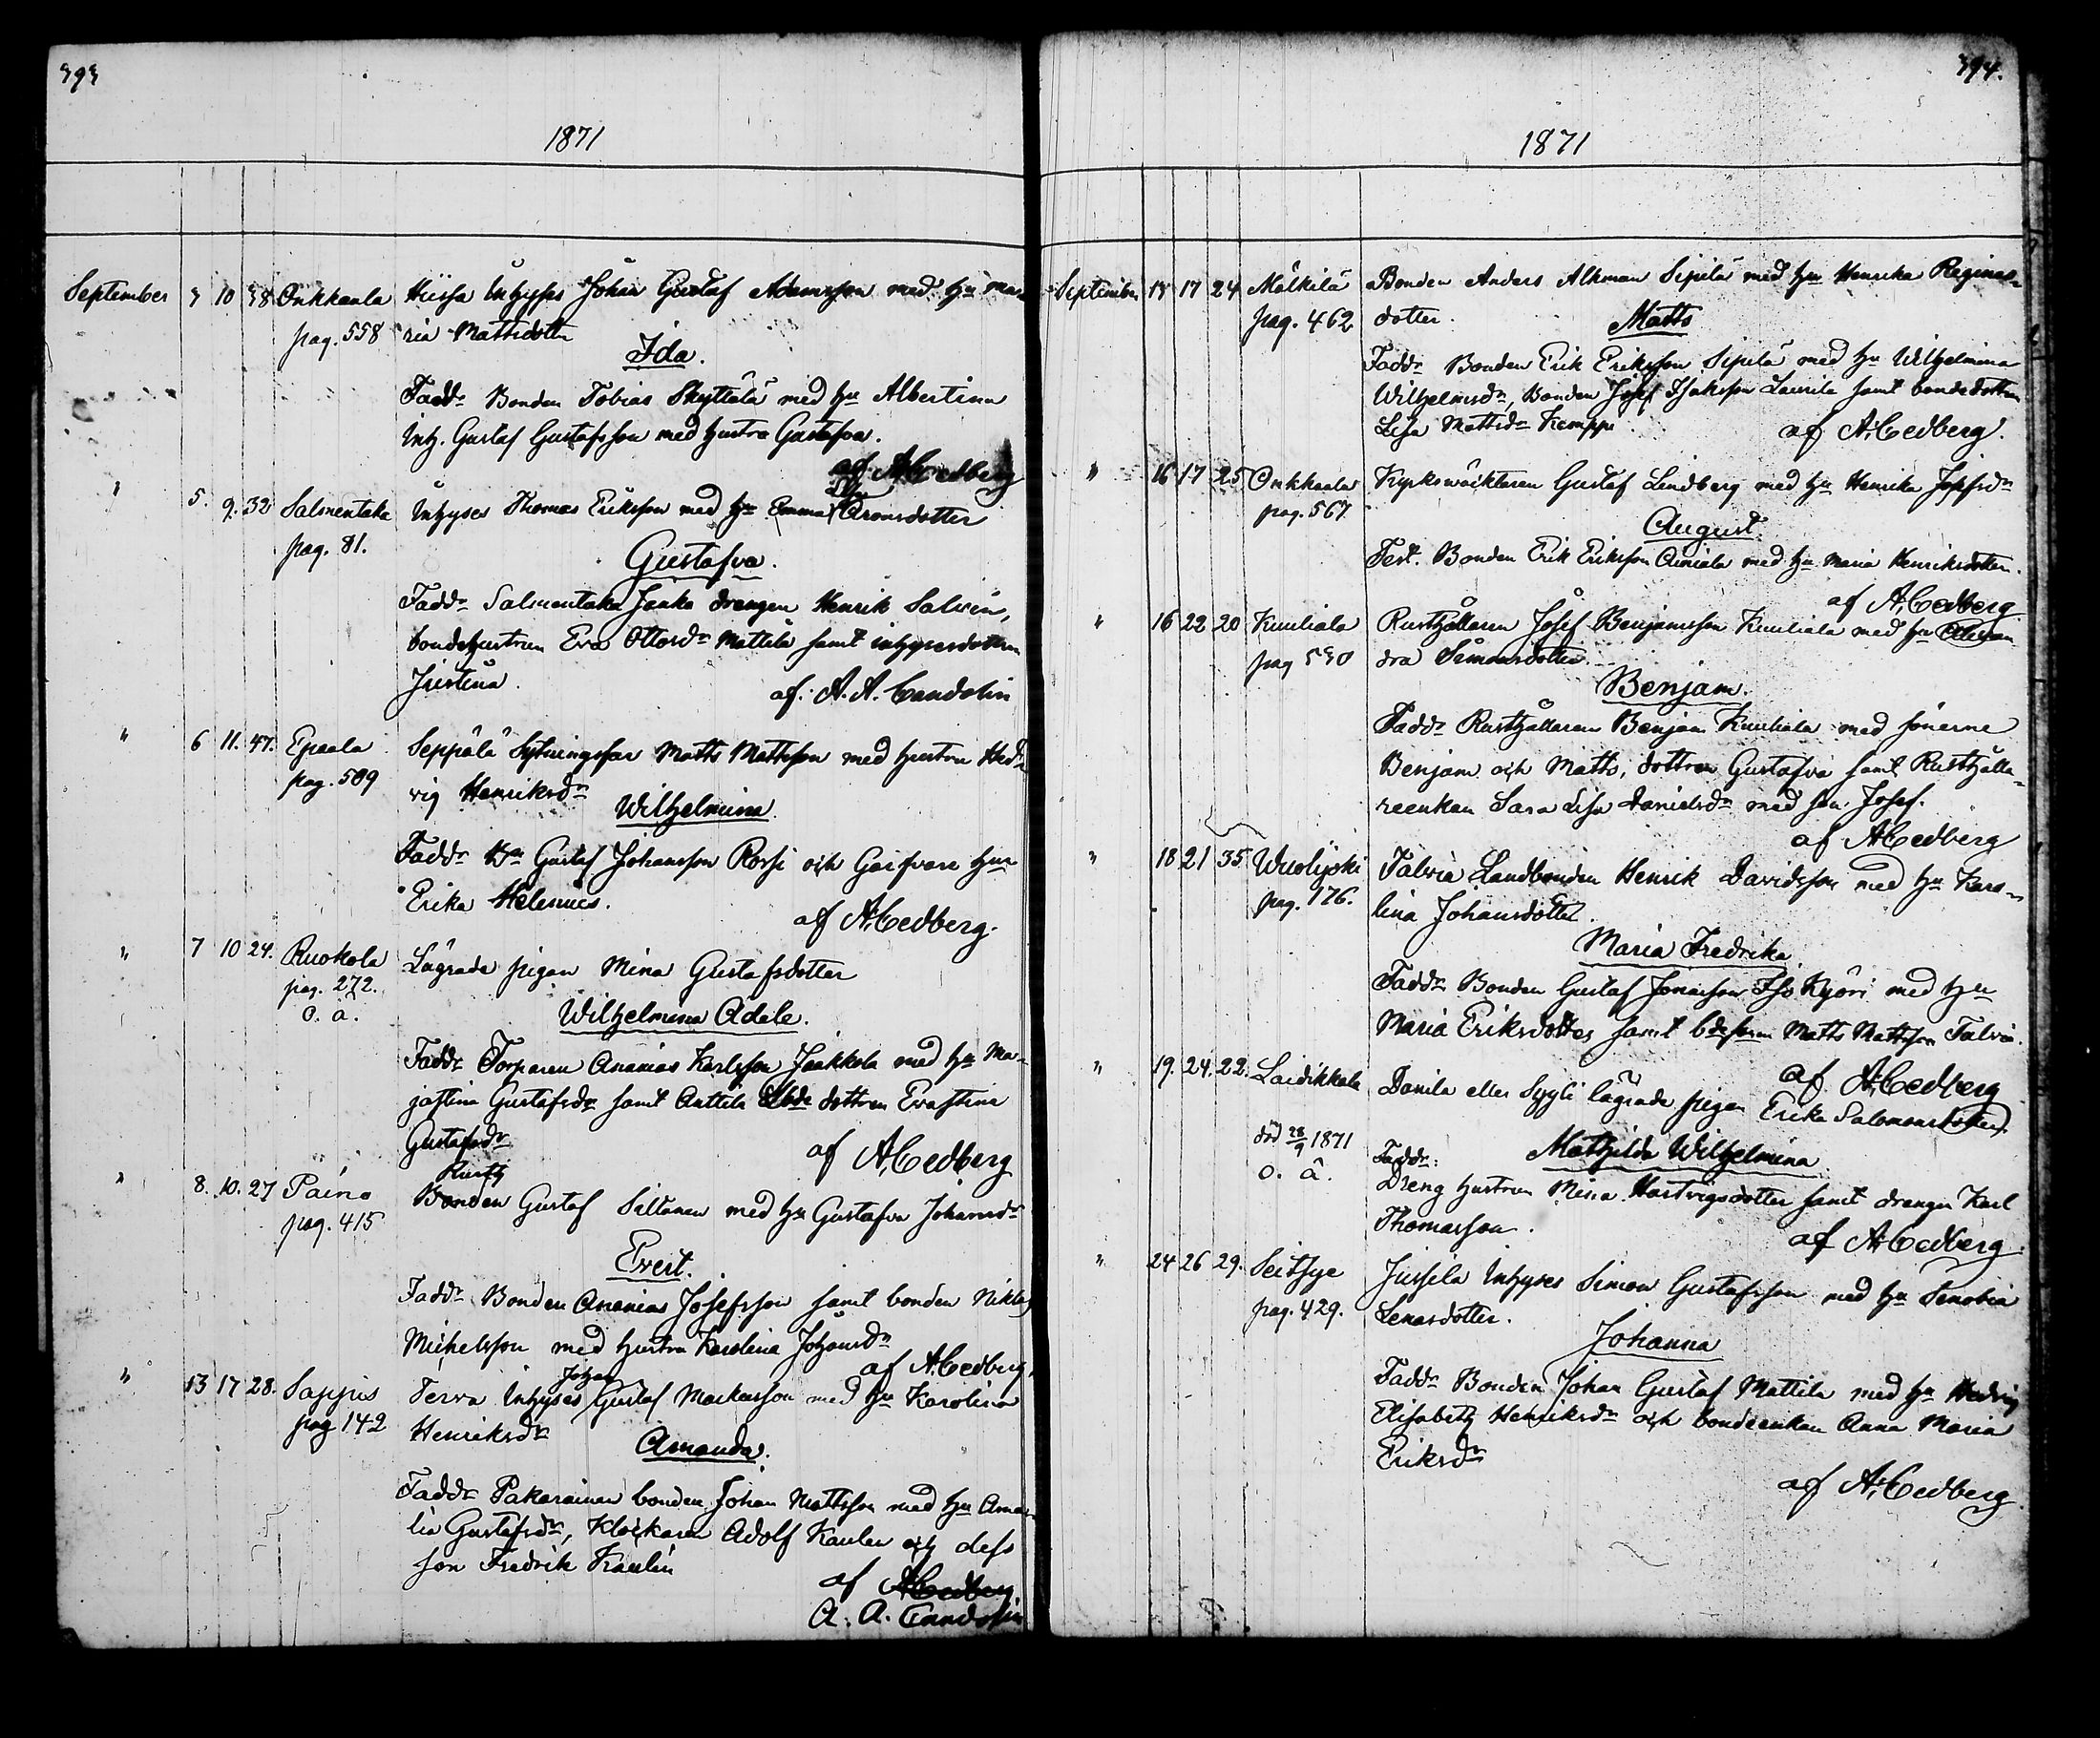 393
1871
September 3 10 38 Onkkaala Hiissa Inhyses Johan Gustaf Adamsson med hu Ma=
pag. 558 ria Mattsdotter
Ida.
Faddr Bonden Tobias Skyttälä med hu Albertina
Inh. Gustaf Gustafsson med hustru Gustafva.
af A. Cedberg
" 5. 9. 32 Salmentaka Inhyses Thomas Eriksson med hu Emma Aronsdotter
pag. 81.
Gustafva.
Faddr Salmentaka Janka drengen Henrik Salvén,
bondehustrun Eva Ottosdr Mattila samt inhysesdottren
Justina.
af. A. A. Candolin
" 6 11. 47. Epaala Seppälä Sytningsfar Matts Mattsson med hustru Hed=
pag. 509 vig Henriksdr
Wilhelmina.
Faddr Gustaf Johansson Rossi och Garfvare hun
Erika Helenius.
af A. Cedberg.
" 7 10 24. Ruokola Lägrade pigan Mina Gustafsdotter
pag. 272.
o. ä.
Wilhelmina Adele.
Faddr Torparen Ananias Karlsson Jaakkola med hu Ma=
jastina Gustafsdr samt Anttila dottren Evastina
Gustafsdr
af A. Cedberg
Rusth
" 8. 10. 27 Paino Bonden Gustaf Siltanen med hu Gustafva Johansdr
pag. 415
Evert.
Faddr Bonden Ananias Josefsson samt bonden Niklas
Michelsson med hustru Karolina Johansdr
af A. Cedberg.
Johan
" 13 17 28. Sappis Terra Inhyses Gustaf Markusson med hu Karolina
pag 142 Henriksdr
Amanda.
Faddr Pakarainen bonden Johan Mattsson med hu Ama=
lia Gustafsdr, Klockaren Adolf Kaulen och dess
son Fredrik Kaulin
af A. Cedberg
A. A. Candolin
394.
1871
September 15 17 24 Mälkilä Bonden Anders Alkman Sipilä med hu Henrika Reginas=
pag. 462 dotter.
Matts
Faddr Bonden Erik Eriksson Sipilä med hu Wilhelmina
Wilhelmsdr, Bonden Josef Isaksson Laurila samt bondedottren
Lisa Mattsdr Kemppi.
af A. Cedberg.
" 16 17 25 Onkkaala Kyrkowäktaren Gustaf Lindberg med hu Henrika Josefsdr
pag. 567
August.
Test. Bonden Erik Eriksson Aimala med hu Maria Henriksdotter.
af A. Cedberg
" 16 22 20 Kuuliala Rusthållaren Josef Benjamsson Kuuliala med hu Alexan
pag 530 dra Simonsdotter.
Benjam.
Faddr Rusthållaren Benjam Kuuliala med sönerne
Benjam och Matts, dottren Gustafva samt Rusthålla=
reenkan Sara Lisa Danielsdr med son Josef.
af A. Cedberg
" 18 21 35 Wuolijoki Talvia Landbonden Henrik Davidsson med hu Karo=
pag. 176. lina Johansdotter.
Maria Fredrika
Faddr Bonden Gustaf Jonasson Iso Kyöri med hu
Maria Eriksdotter samt bdesonen Matts Mattsson Talvia.
af A. Cedberg
" 19. 24. 22. Laidikkala Danila eller Syyli lägrade pigan Erika Salomonsdotter
död 28/9 1871
o. ä.
Mathilda Wilhelmina
Faddr:
Dreng hustrun Mina Hartvigsdotter samt drengen Karl
Thomasson.
af A. Cedberg.
" 24 26 29. Seitsye Jussila Inhyses Simon Gustafsson med hu Senobia
pag. 429. Lenasdotter.
Johanna
Faddr Bonden Johan Gustaf Mattila med hu Hedvig
Elisabeth Henriksdr och bondeenkan Anna Maria
Eriksdr
af A. Cedberg